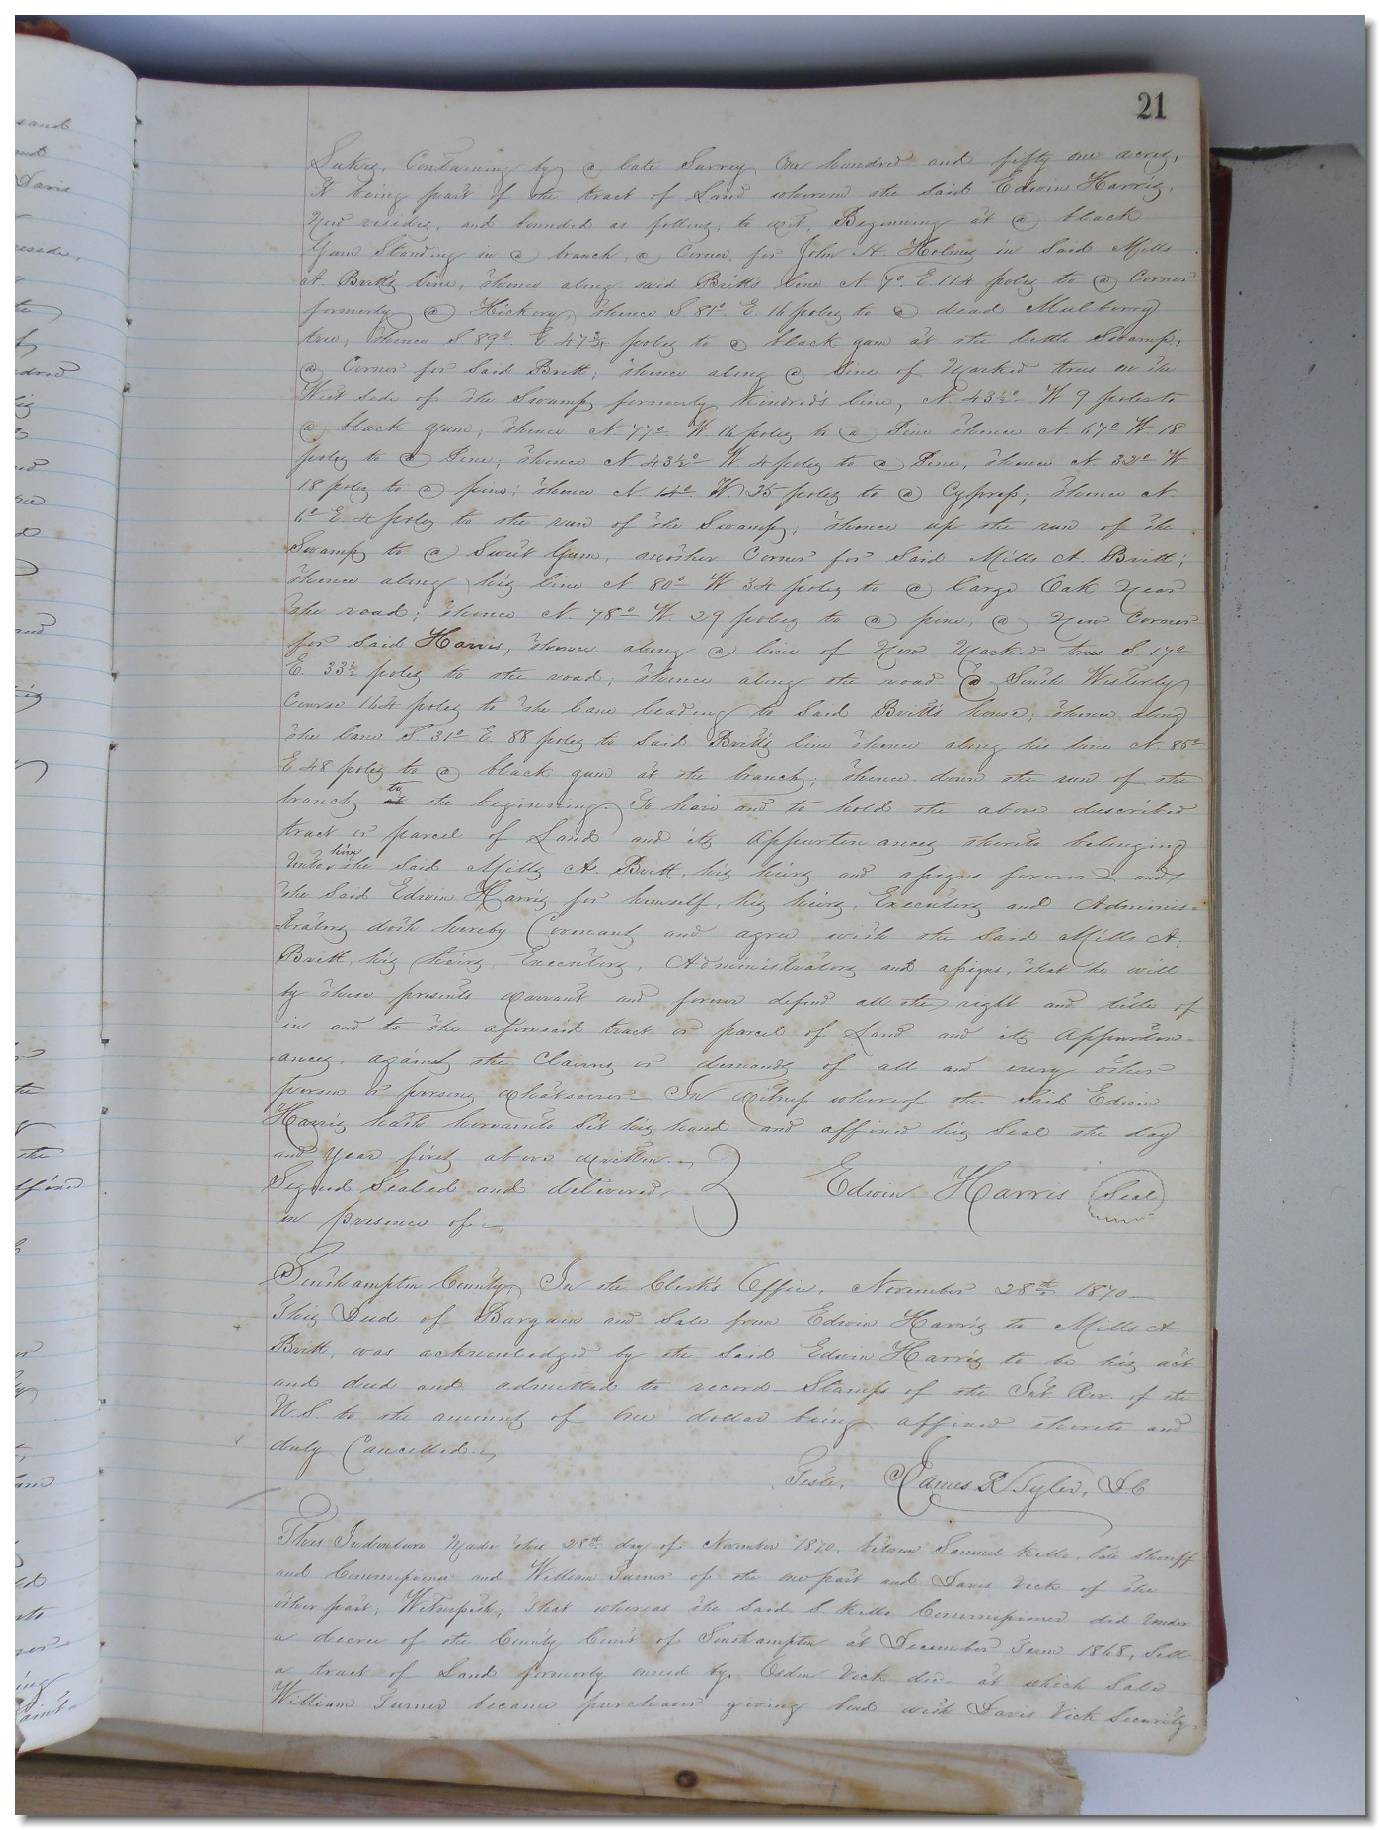 21
Lukes, Containing by a late Survey One hundred and fifty one acres,
It being part of the tract of Land whereon the said Edwin Harris,
Now resides, and bounded as follows, to wit, Beginning at a black
Gum Standing in a branch, a Corner for John H. Holmes in Said Mills
A. Britt's line, thence along said Britts line N 7° E 114 poles to a Corner
formerly a Hickory, thence S 81° E. 16 poles to a dead Mulberry
tree, thence S 89° E 47¾ poles to a black gum at the little Swamp,
a Corner for Said Britt; thence along a line of Marked trees on the
West side of the Swamp formerly Kindred's line, N. 43½° W 9 poles to
a black gum; thence N 77° W. 16 poles to a Pine thence N 67° W. 18
poles to a Pine; thence N 43½° W. 4 poles to a Pine, thence N. 32° W
18 poles to a pine; thence N 14° W 25 poles to a Cypress; thence N
6° E. 4 poles to the run of the Swamp; thence up the run of the
Swamp to a Sweet Gum, another Corner for Said Mills A. Britt;
thence along his line N. 80° W 34 poles to a large Oak near
the road; thence N. 78° W. 29 poles to a pine, a New Corner
for said Harris, thence along a line of New Marked trees S. 17°
E. 33½ poles to the road; thence along the road a South Westerly
Course 164 poles to the lane leading to Said Britt's house; thence along
the lane S 31° E. 88 poles to Said Britt's line thence along his line N. 85°
E 48 poles to a black gum at the branch; thence down the run of the
branch to the beginning. To have and to hold the above described
tract or parcel of Land and its Appurtenances thereto belonging
Unto him the Said Mills A. Britt, his heirs and assigns forever and
the Said Edwin Harris for himself, his heirs, Executors and Adminis-
trators doth hereby Covenant and agree with the Said Mills A.
Britt, his heirs, Executors, Administrators and assigns, that he will
by these presents warrant and forever defend all the right and title of
in and to the aforesaid tract or parcel of Land and its Appurten-
ances, against the Claims or demands of all and every other
person or persons whatsoever In witness whereof the Said Edwin
Harris hath hereunto Set his hand and affixed his Seal the day
and year first above written.
Signed Sealed and delivered, Edwin Harris Seal
in presence of
Southampton County, In the Clerk's Office, November 28th 1870
This Deed of Bargain and Sale from Edwin Harris to Mills A
Britt, was acknowledged by the Said Edwin Harris to be his act
and deed and admitted to record Stamps of the Int. Rev. of the
U.S. to the amount of One dollar being affixed thereto and
duly Cancelled.
Teste, James R Tyler, D.C
This Indenture Made this 28th day of November 1870, between Samuel Kello, late Sheriff
and Commissioner and William Turner of the one part and Davis Vick of the
other part; Witnesseth; that whereas the Said S Kello Commissioner did Under
a decree of the County Court of Southampton at December Term 1868, Sell
a tract of Land formerly owned by decd at which Sale
William Turner became purchaser giving bond with Davis Vick Security,